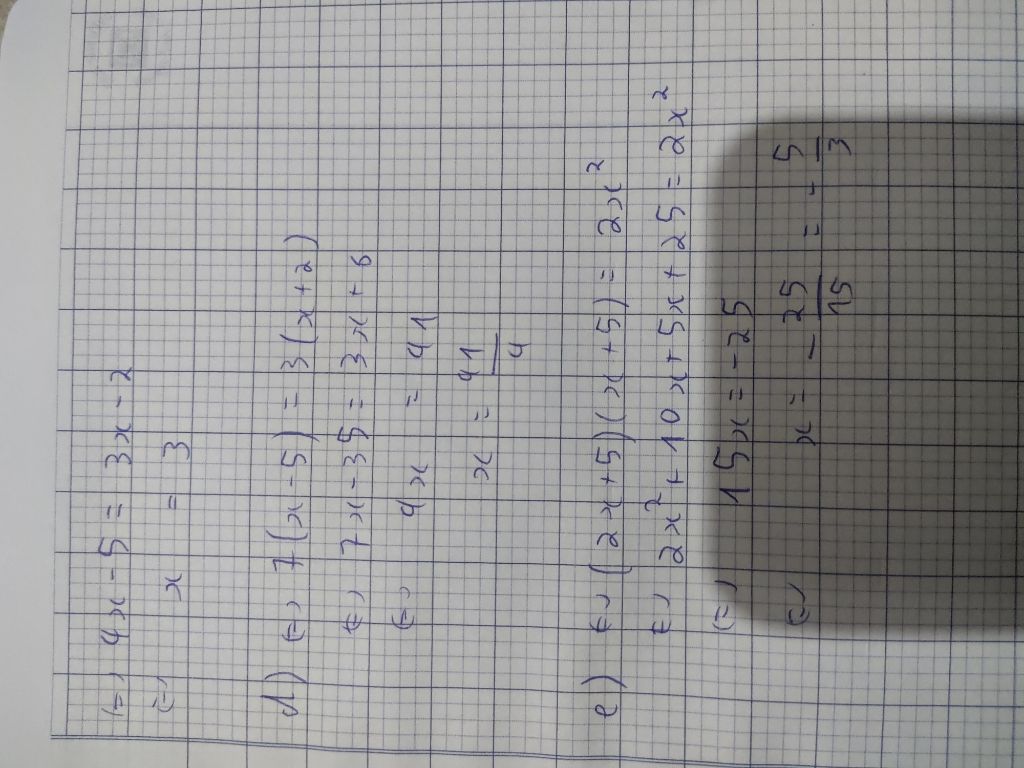 (=) 4x - 5 = 3x - 2
(=) x = 3
d) (=) 7(x - 5) = 3(x + 2)
(=) 7x - 35 = 3x + 6
(=) 4x = 41
x = 41/4
e) (=) (2x + 5)(x + 5) = 2x²
(=) 2x² + 10x + 5x + 25 = 2x²
(=) 15x = -25
(=) x = - 25/15 = - 5/3